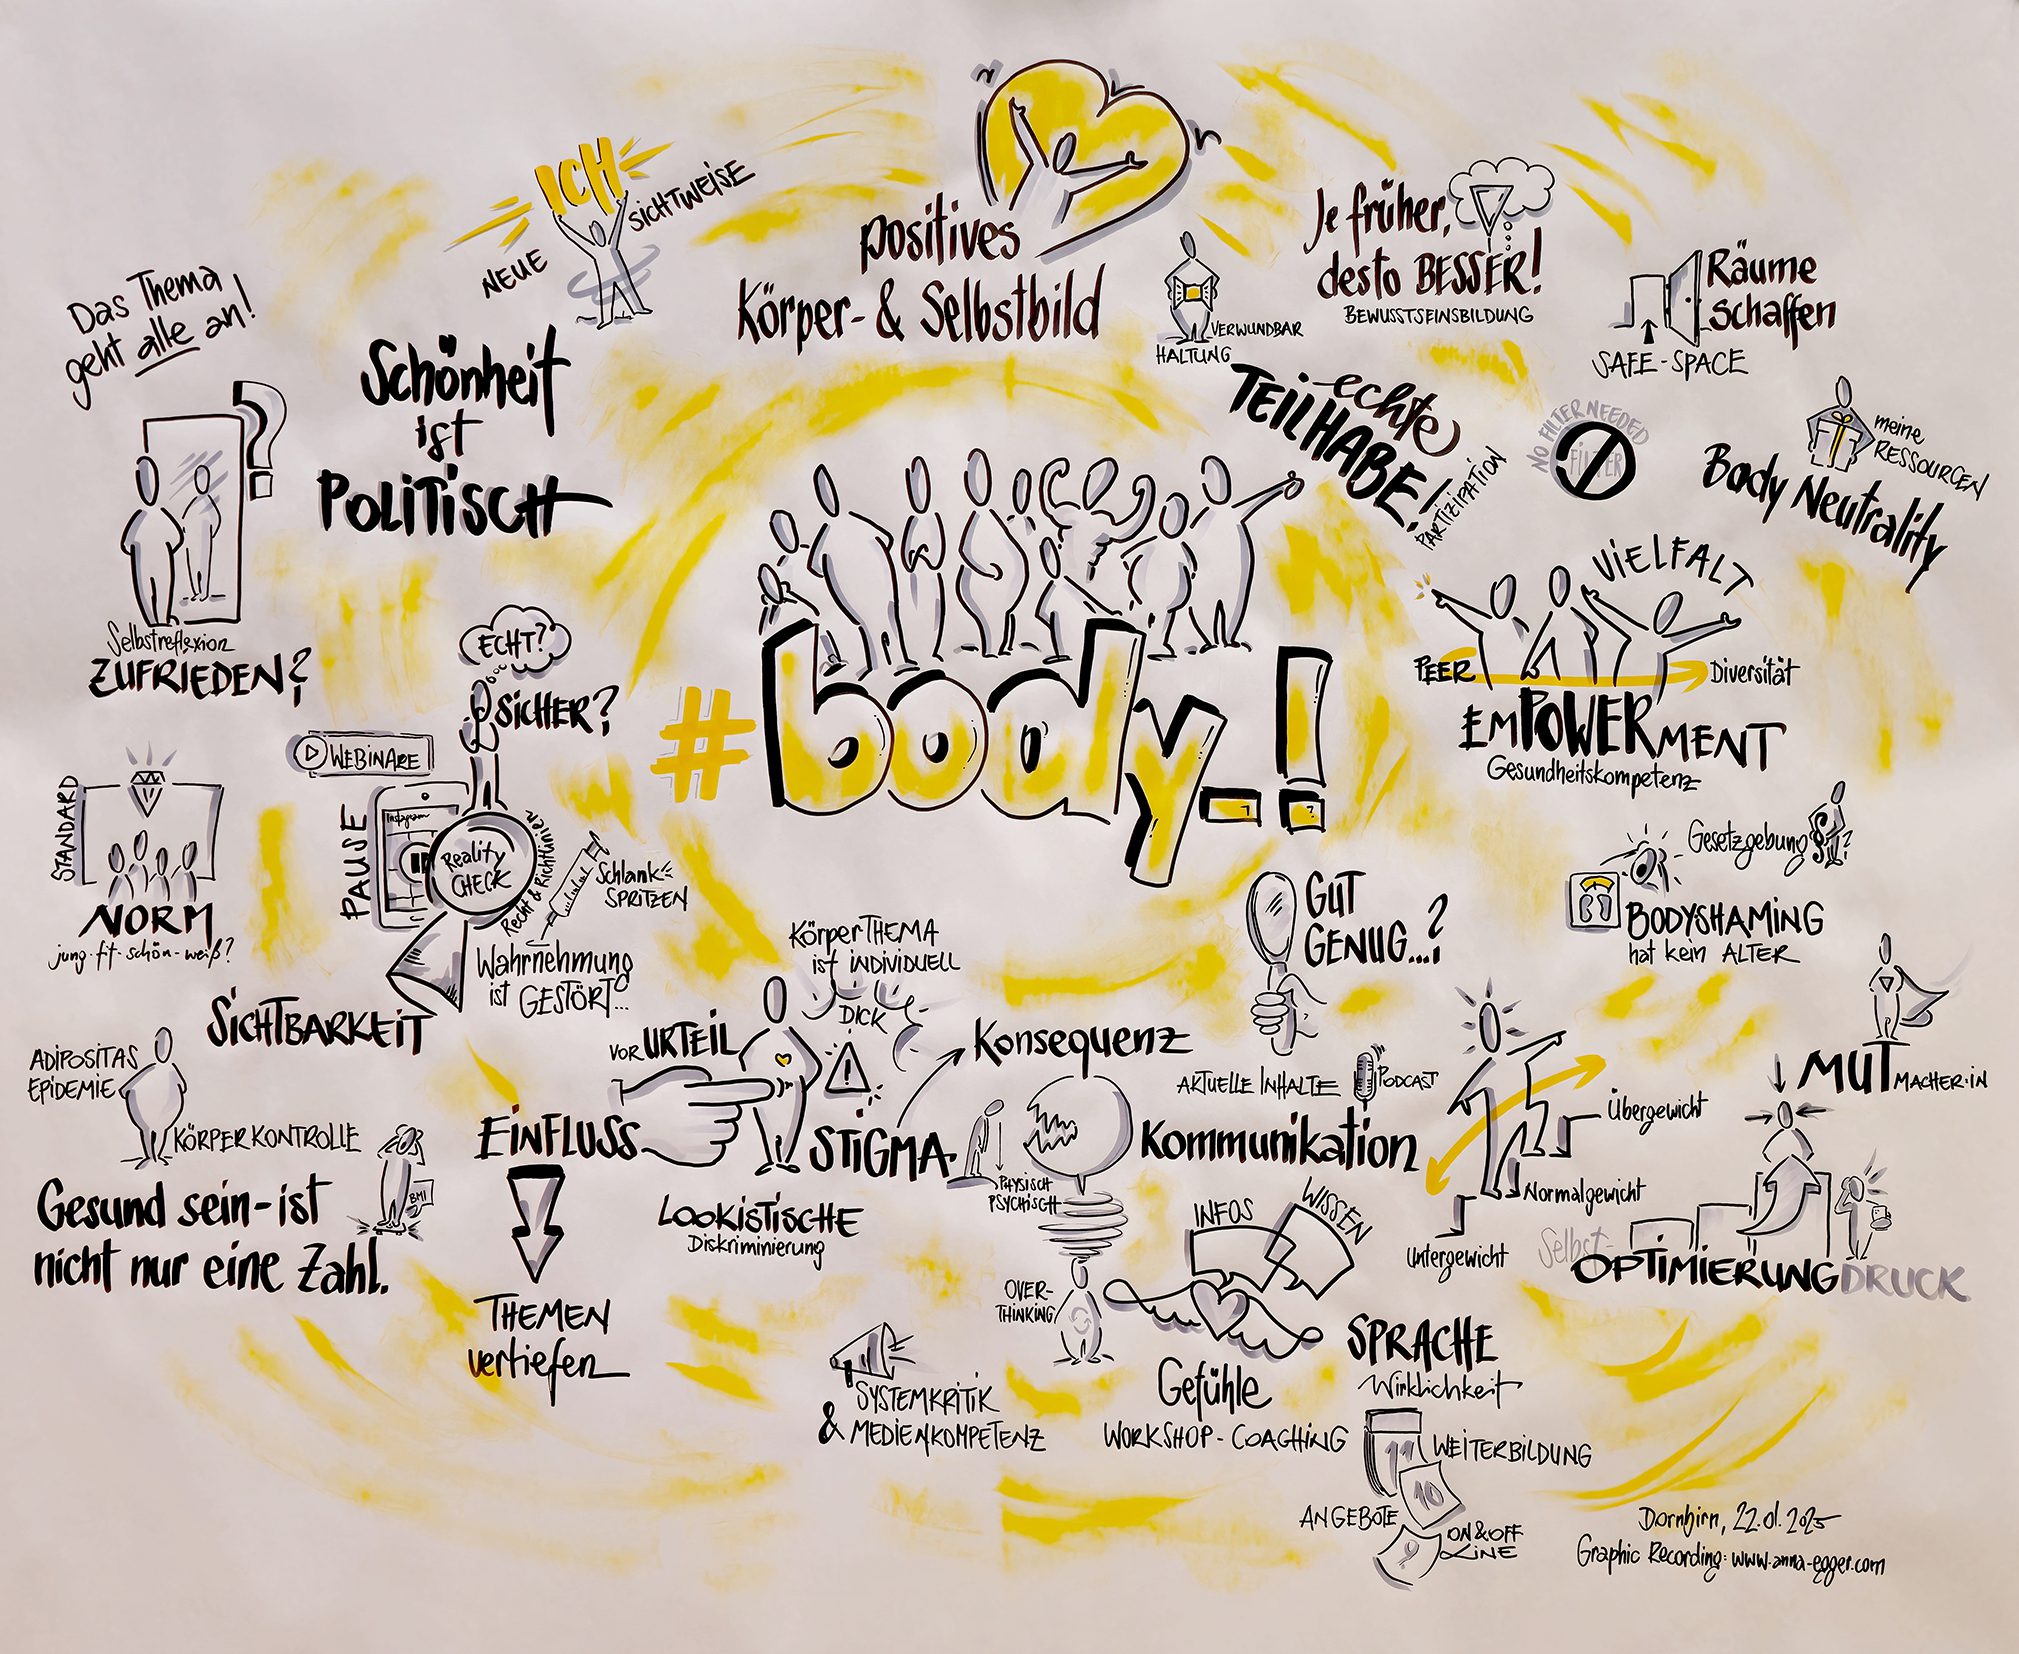 ICH
NEUE
SICHTWEISE
positives
Körper- & Selbstbild
Das Thema
geht alle an!
Schönheit
ist
POLITISCH
VERWUNDBAR
HALTUNG
Je früher,
desto BESSER!
BEWUSSTSEINSBILDUNG
Räume
schaffen
SAFE-SPACE
echte
TEILHABE!
PARTIZIPATION
NO FILTER NEEDED
FILTER
meine
RESSOURCEN
Body Neutrality
?
Selbstreflexion
ZUFRIEDEN?
ECHT?
SICHER?
#body_!
VIELFALT
PEER
Diversität
EMPOWERMENT
Gesundheitskompetenz
WEBINARE
STANDARD
NORM
jung-fit-schön-weiß?
PAUSE
Instagram
Reality
CHECK
Recht & Richtlinien
Schlank
SPRITZEN
Wahrnehmung
ist GESTÖRT...
SICHTBARKEIT
KörperTHEMA
ist INDIVIDUELL
DICK
GUT
GENUG...?
Gesetzgebung §?
BODYSHAMING
hat kein ALTER
ADIPOSITAS
EPIDEMIE
KÖRPERKONTROLLE
BMI
Gesund sein-ist
nicht nur eine Zahl.
VORURTEIL
EINFLUSS
STIGMA
LOOKISTISCHE
Diskriminierung
THEMEN
vertiefen
Konsequenz
PHYSISCH
PSYCHISCH
OVER-
THINKING
AKTUELLE INHALTE
PODCAST
Kommunikation
INFOS
WISSEN
Gefühle
WORKSHOP-COACHING
SYSTEMKRITIK
& MEDIENKOMPETENZ
Übergewicht
Normalgewicht
Untergewicht
MUTMACHER·IN
Selbst-
OPTIMIERUNGDRUCK
SPRACHE
Wirklichkeit
11
10
9
WEITERBILDUNG
ANGEBOTE
ON&OFF
LINE
Dornbirn, 22.01.2025
Graphic Recording: www.anna-egger.com